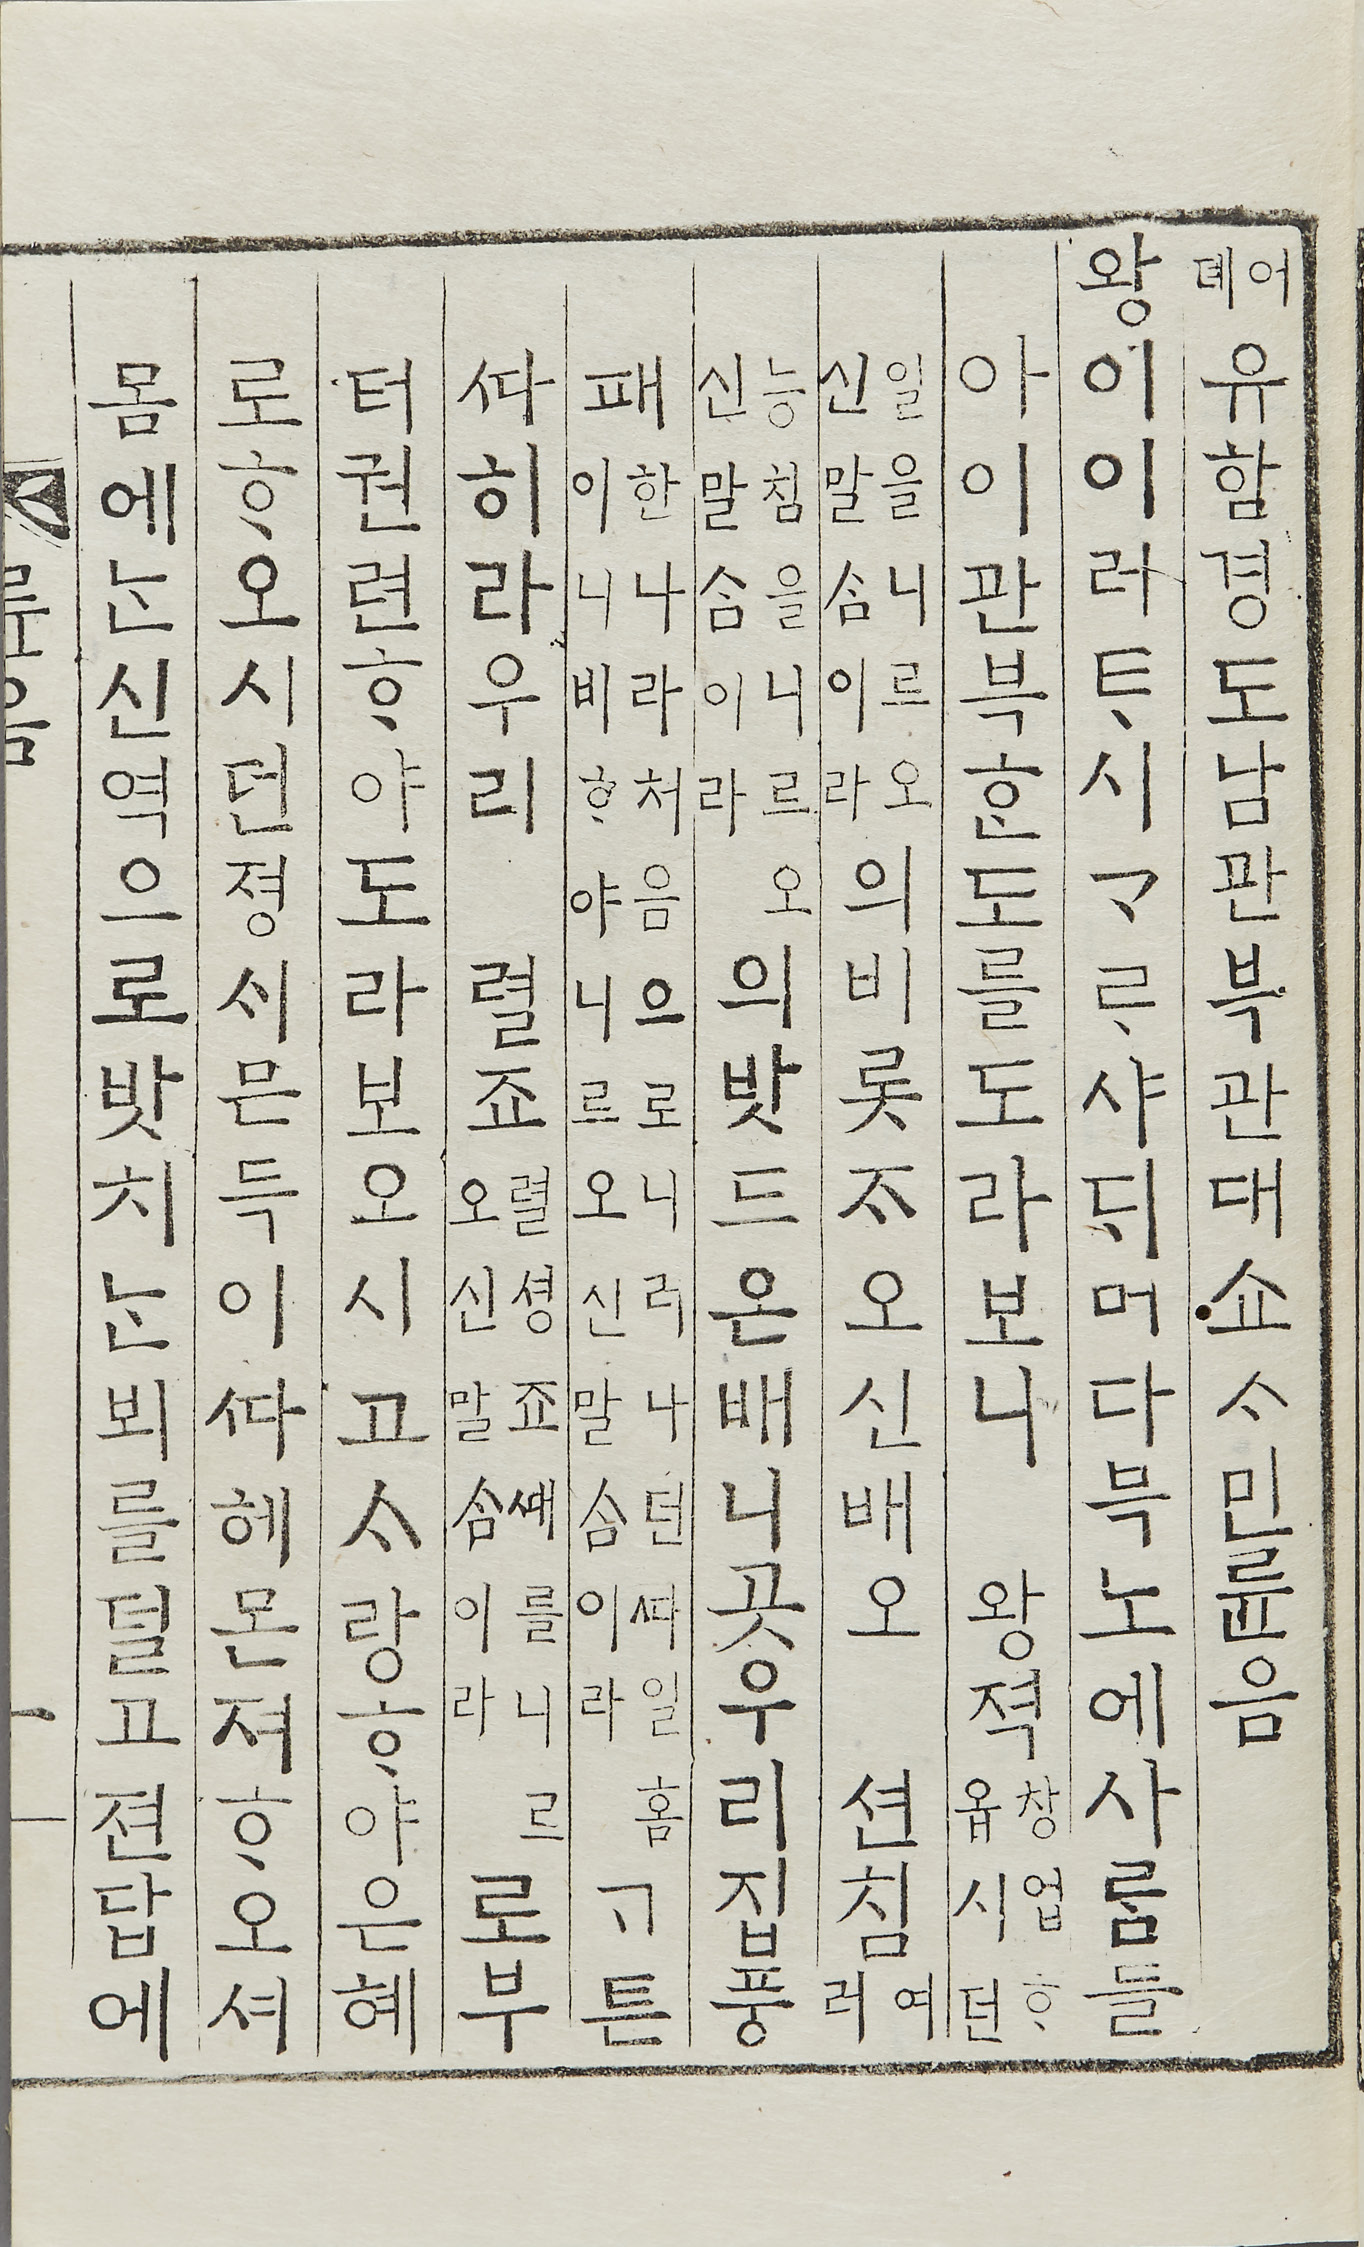 어뎨유함경도남관북관대쇼ᄉᆞ민륜음
왕이이러ᄐᆞ시ᄀᆞᄅᆞ샤ᄃᆡ머다븍노에사ᄅᆞᆷ들
아이관븍ᄒᆞᆫ도를도라보니 왕젹창업ᄒᆞ옵시던
일을니르오신말ᄉᆞᆷ이라의비롯ᄌᆞ오신배오 션침여러
능침을니르오신말ᄉᆞᆷ이라의밧드온배니곳우리집풍
패한나라처음으로니러나던ᄯᅡ일홈이니비ᄒᆞ야니르오신말ᄉᆞᆷ이라ᄀᆞ튼
ᄯᅡ히라우리 렬죠렬셩죠ᄯᅢ를니르오신말ᄉᆞᆷ이라로부
터권련ᄒᆞ야도라보오시고ᄉᆞ랑ᄒᆞ야은혜
로ᄒᆞ오시던졍시믄득이ᄯᅡ헤몬져ᄒᆞ오셔
몸에ᄂᆞᆫ신역으로밧치ᄂᆞᆫ뵈를덜고젼답에